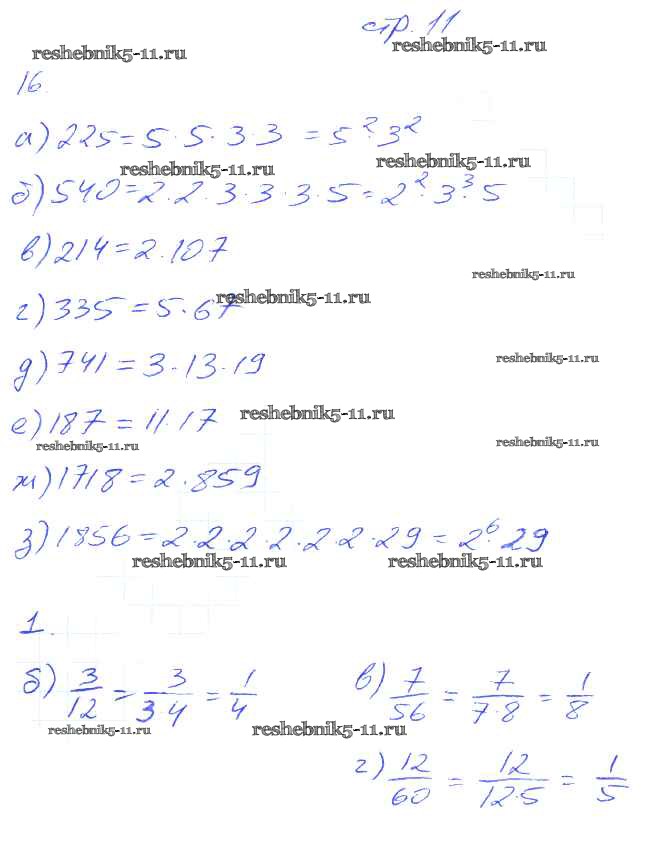 стр. 11
reshebnik5-11.ru reshebnik5-11.ru
16.
а) 225 = 5 · 5 · 3 · 3 = 5² · 3²
reshebnik5-11.ru reshebnik5-11.ru
б) 540 = 2 · 2 · 3 · 3 · 3 · 5 = 2² · 3³ · 5
в) 214 = 2 · 107
reshebnik5-11.ru
г) 335 = 5 · 67
reshebnik5-11.ru
д) 741 = 3 · 13 · 19
reshebnik5-11.ru
е) 187 = 11 · 17
reshebnik5-11.ru
reshebnik5-11.ru reshebnik5-11.ru
ж) 1718 = 2 · 859
з) 1856 = 2 · 2 · 2 · 2 · 2 · 2 · 29 = 2⁶ · 29
reshebnik5-11.ru reshebnik5-11.ru
1.
б) 3/12 = 3/(3·4) = 1/4 в) 7/56 = 7/(7·8) = 1/8
reshebnik5-11.ru reshebnik5-11.ru
г) 12/60 = 12/(12·5) = 1/5